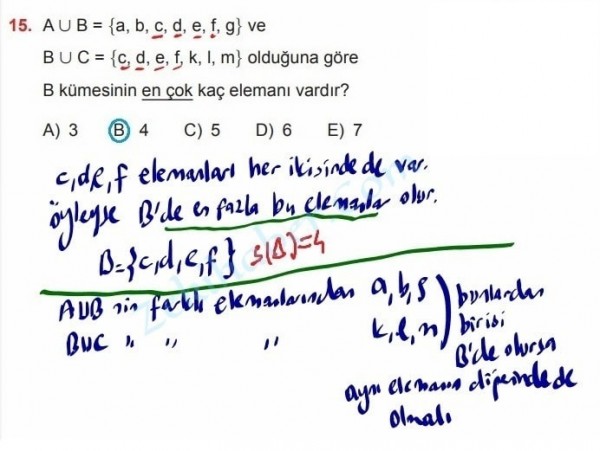 15. A ∪ B = {a, b, c, d, e, f, g} ve
B ∪ C = {c, d, e, f, k, l, m} olduğuna göre
B kümesinin en çok kaç elemanı vardır?
A) 3 B) 4 C) 5 D) 6 E) 7
c,d,e,f elemanları her ikisinde de var.
öyleyse B'de en fazla bu elemanlar olur.
B={c,d,e,f} s(B)=4
AUB nin farklı elemanlarından a,b,g
BUC " " " k,l,m
bunlardan
birisi
B'de olursa
aynı eleman diğerinde de
olmalı